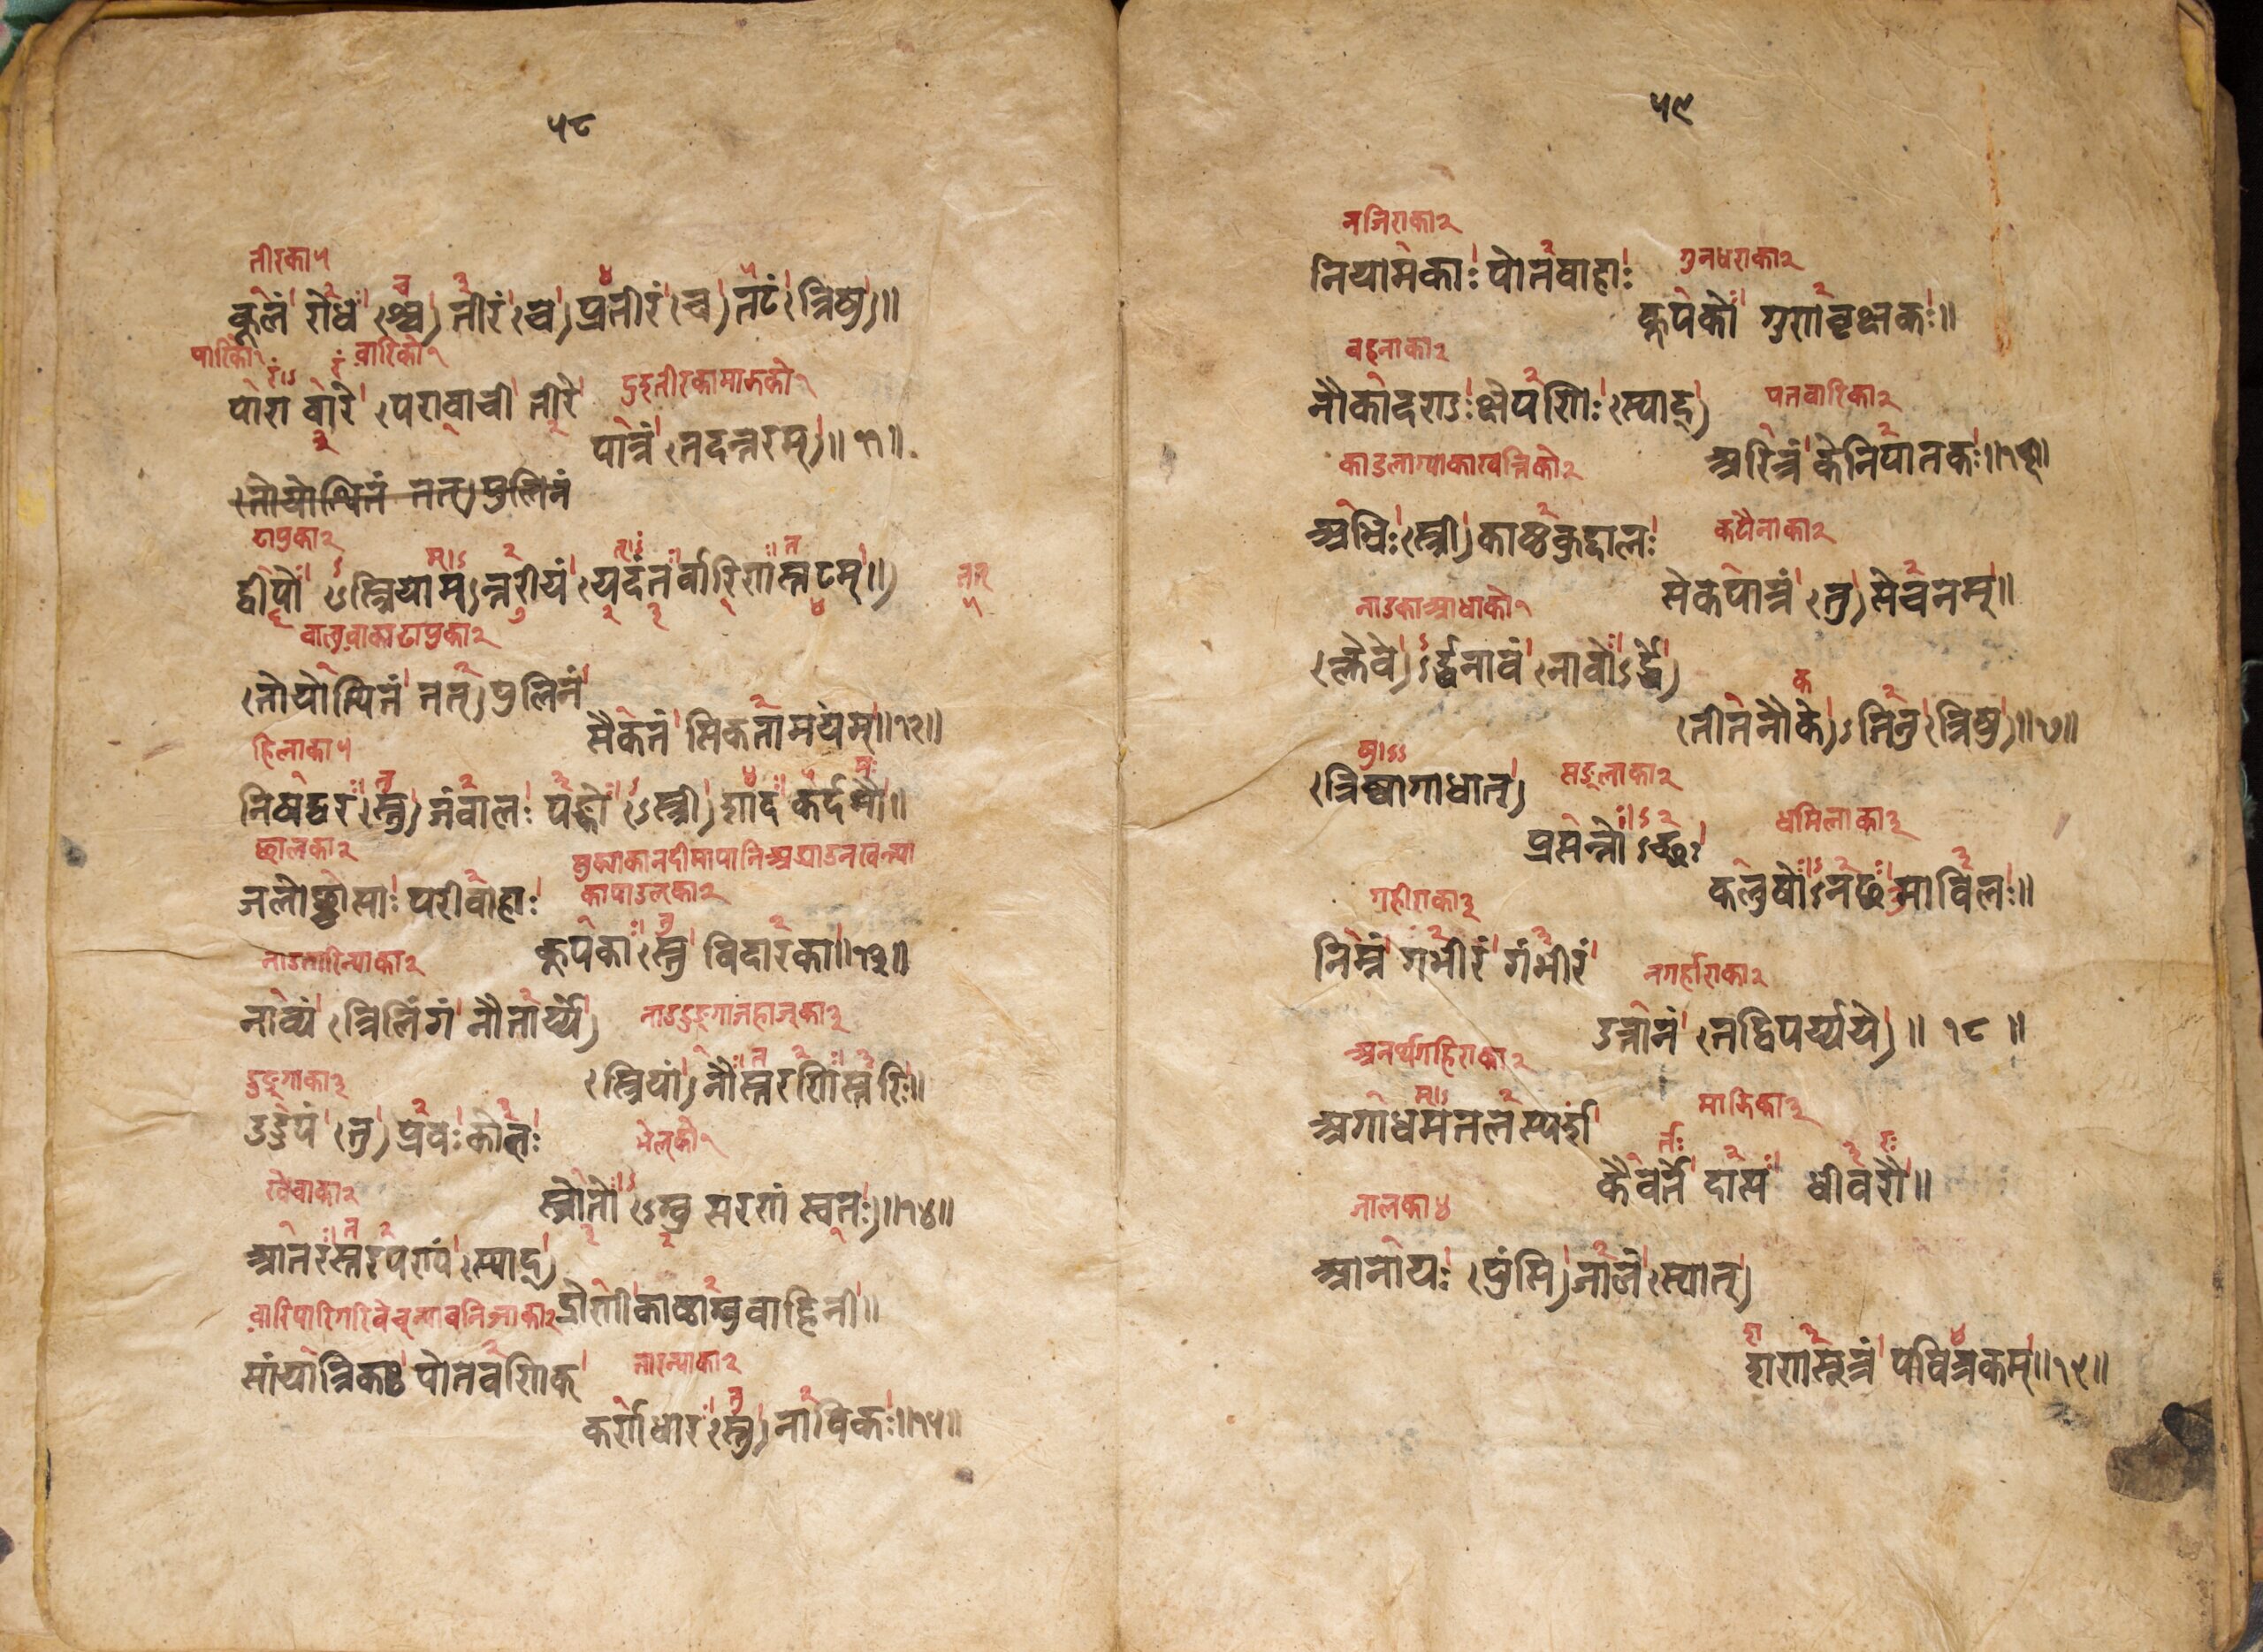 ५८
तीरका५
कूलं रोधश्च तीरं च प्रतीरं च तटं त्रिषु॥
पारिको१ वारिको१
पारावारे परावाची तीरे
दुइतीरकामाझको१
पात्रं तदन्तरम्॥ ११॥
तोयोत्थितं तत् पुलिनं
टापुका२
द्वीपोऽस्त्रियामन्तरीयं यदन्तर्वारिणस्तटम्॥
तत्
बालुवाकाटापुका२
तोयोत्थितं तत् पुलिनं
सैकतं सिकतामयम्॥१२॥
हिलाका५
निषद्वरस्तु जंबालः पङ्कोऽस्त्री शादकर्दमौ॥
छालका२
जलोच्छ्वासाः परीवाहाः
कूपकास्तु विदारकाः॥१३॥
नाउतारिन्याका२
नाव्यं त्रिलिंगं नौतार्य्ये
नाउडुङ्गाजहाजका३
स्त्रियां नौस्तरणिस्तरिः॥
डुङ्गाका३
उडुपं तु प्लवः कोलः
भेलको१
स्रोतोऽम्बुसरणं स्वतः॥१४॥
खेवाका२
आतरस्तरपण्यं स्याद्
द्रोणी काष्ठाम्बुवाहिनी॥
सांयात्रिकः पोतवणिक्
तारन्याका२
कर्णधारस्तु नाविकः॥१५॥
५९
नियामकाः पोतवाहाः
गुनधराका२
कूपको गुणवृक्षकः॥
बहनाका२
नौकादण्डः क्षेपणिः स्याद्
पतवारिका२
अरित्रं केनिपातकः॥१६॥
अभ्रिः स्त्री काष्ठकुद्दालः
सेकपात्रं तु सेचनम्॥
नाउकाआधाको१
क्लीवेऽर्द्धनावं नावोऽर्द्धे
तीतनौकेऽतिनु त्रिषु॥७॥
त्रिष्वागाधात्
सङ्लाका२
प्रसन्नोऽच्छः
धमिलाका३
कलुषोऽनच्छ माविलः॥
गहीराका३
निम्नं गभीरं गंभीरं
नगहीराका२
उत्तानं तद्विपर्य्यये॥ १८ ॥
अनर्थगहिराका२
अगाधमतलस्पर्शे
माझिका३
कैवर्ते दास धीवरौ॥
जालका४
आनायः पुंसि जालं स्यात्
शणसूत्रं पवित्रकम्॥१९॥